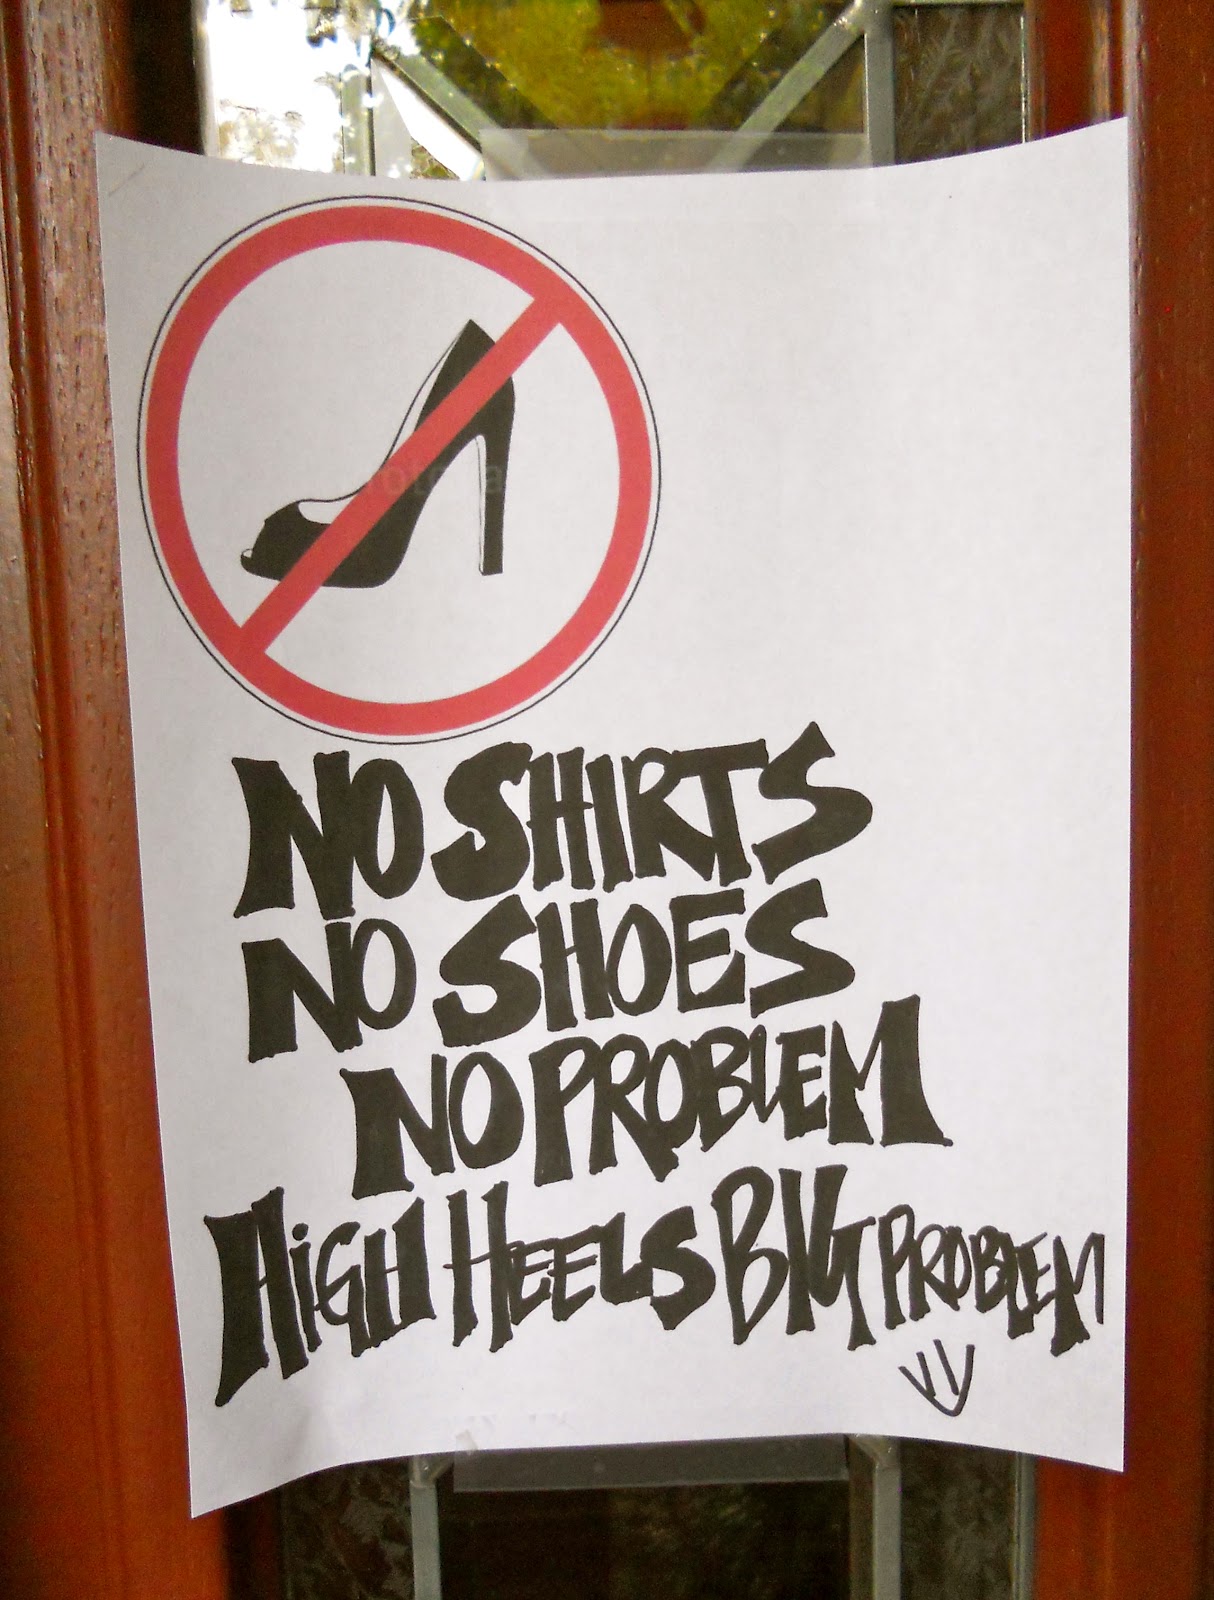 NO SHIRTS
NO SHOES
NO PROBLEM
HIGH HEELS BIG PROBLEM